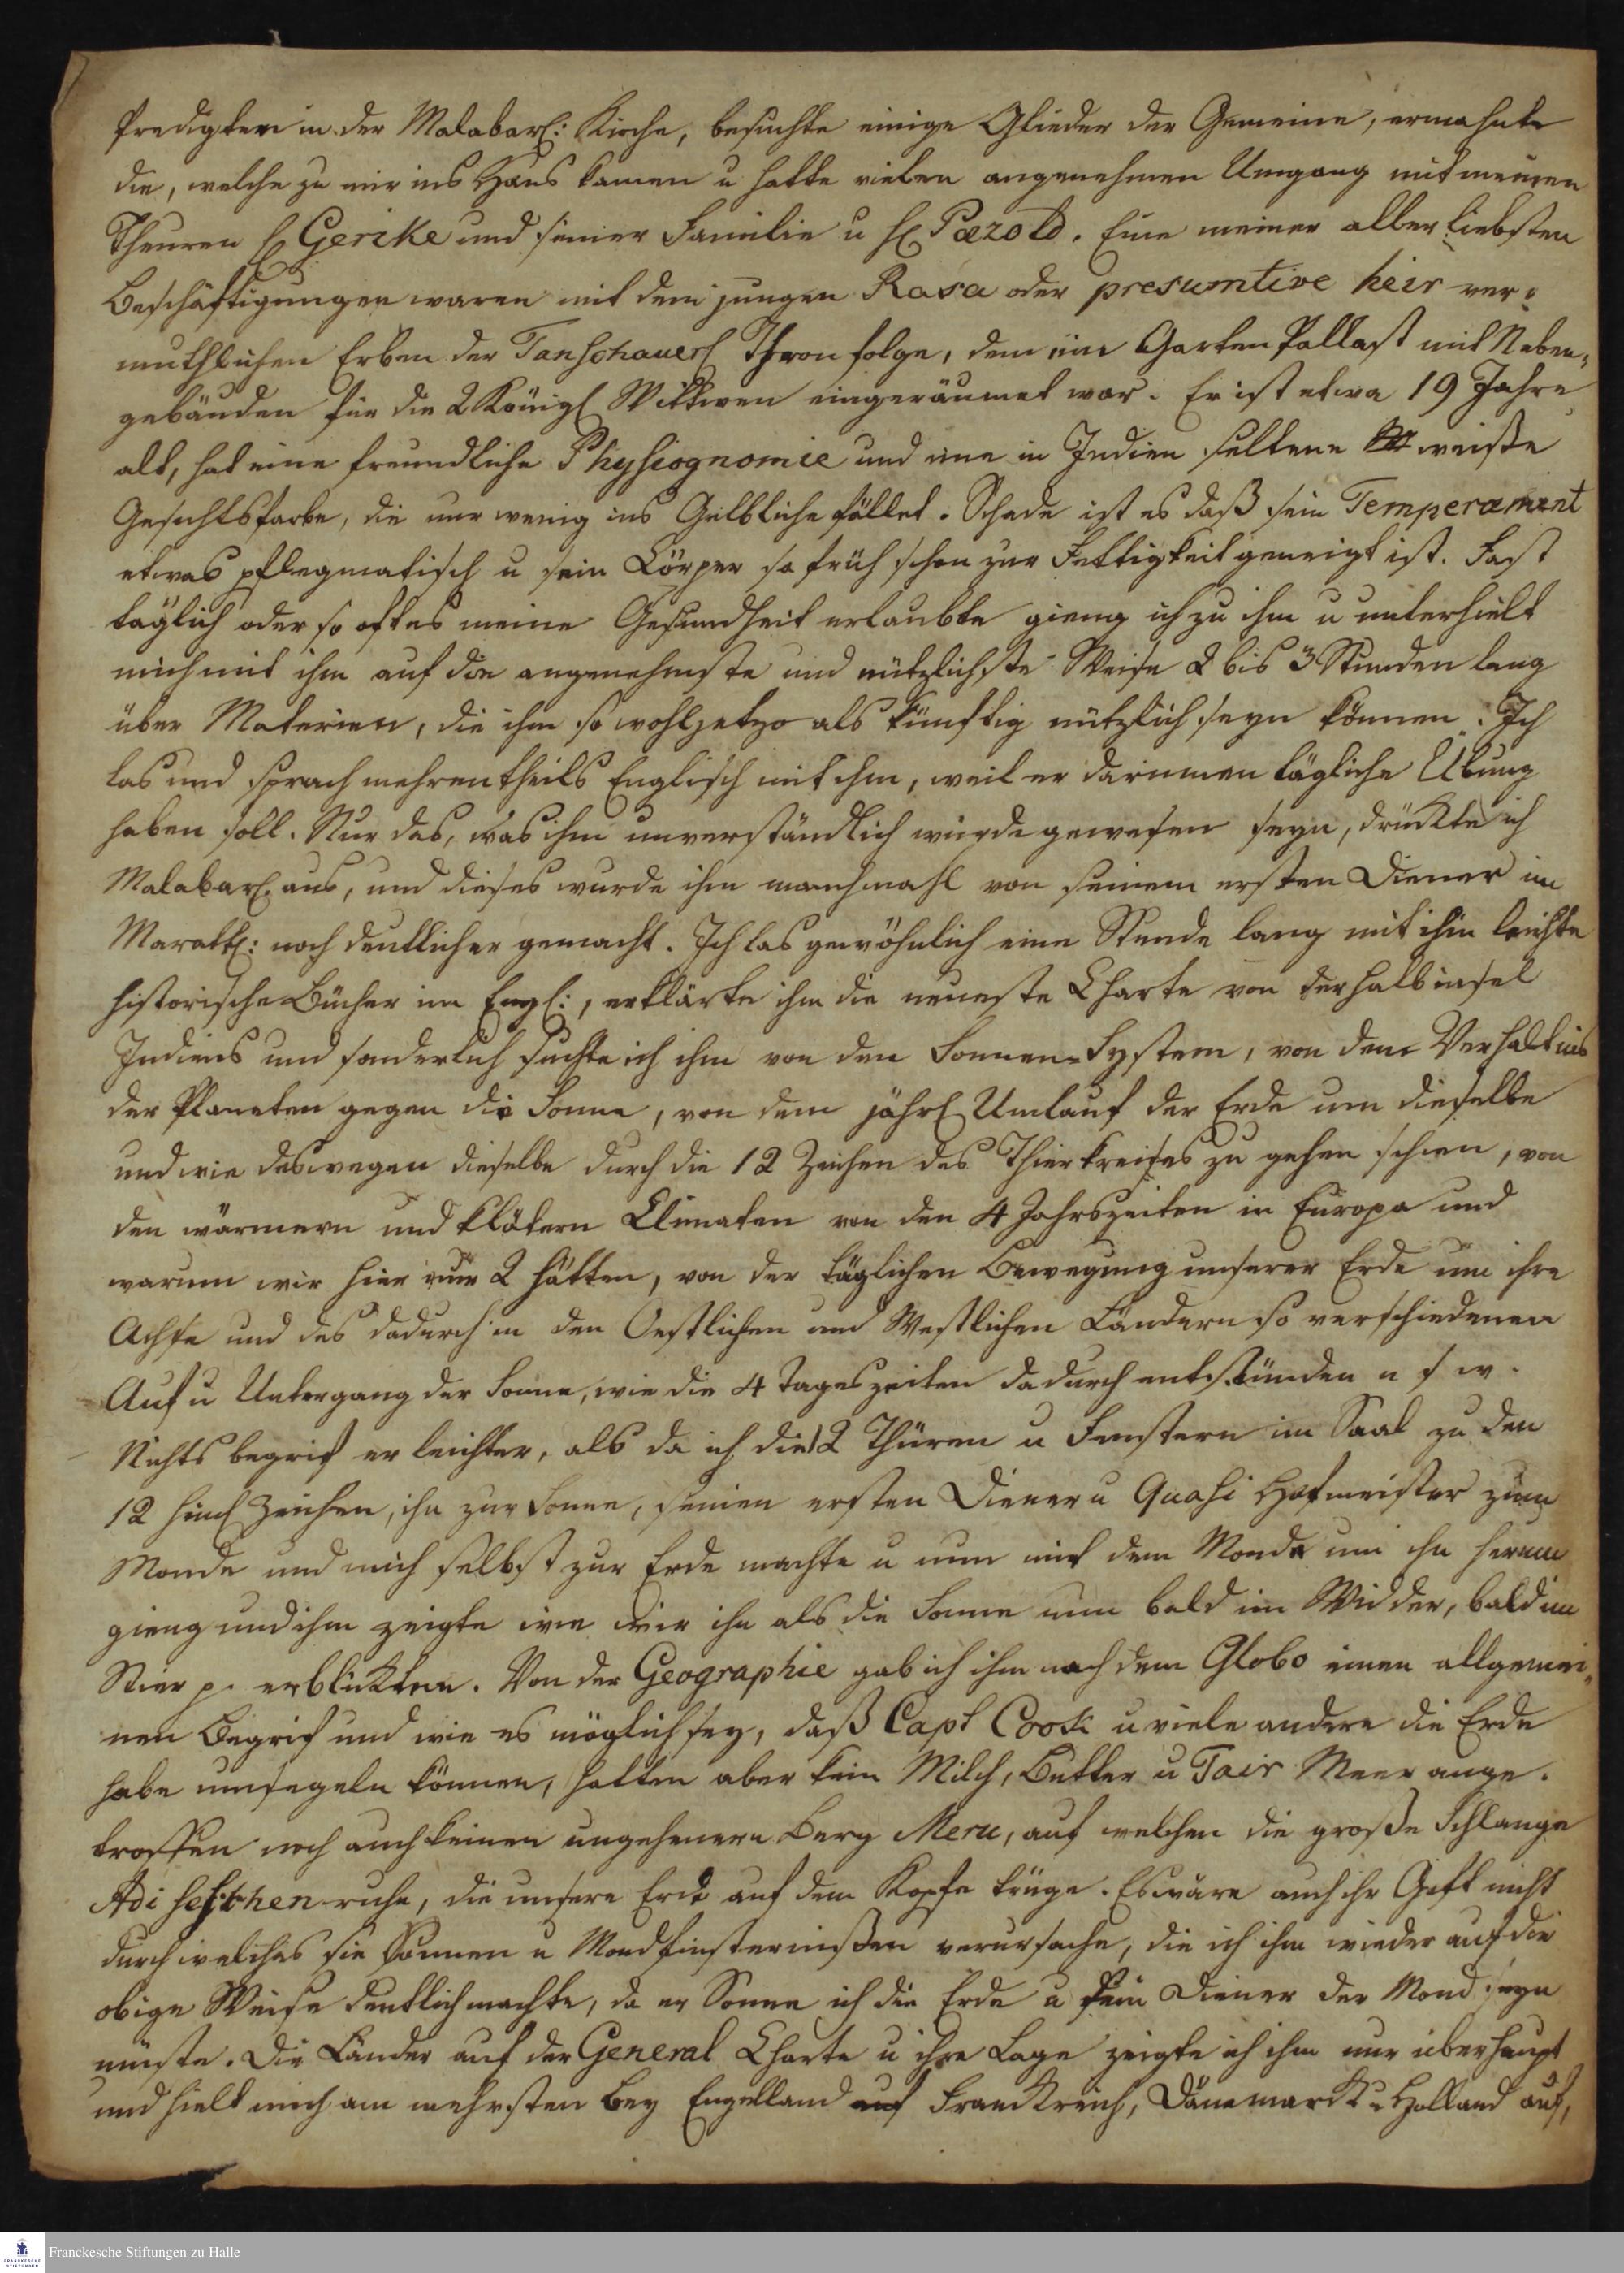 Predigten in der Malabar: Kirche, besuchte einige Glieder der Gemeine, ermahnte
die, welche zu mir ins Haus kamen u hatte vielen angenehmen Umgang mit meinen
Theuren H Gericke und seiner Familie u H Pæzold. Eine meiner allerliebsten
Beschäftigungen waren mit dem jungen Rasa oder presumtive heir ver=
muthlichen Erben der Tanschauer Thronfolge, dem ein Garten Pallast mit Neben=
gebäuden für die 2 Königl Wittwen eingeräumet war. Er ist etwa 19 Jahre
alt, hat eine freundliche Physiognomie und eine in Indien seltene weiße
Gesichtsfarbe, die nur wenig ins Gelbliche fället. Schade ist es daß sein Temperament
etwas pflegmatisch u sein Cörper so früh schon zur Fettigkeit geneigt ist. Fast
täglich oder so oft es meine Gesundheit erlaubte gieng ich zu ihm u unterhielt
mich mit ihm auf die angenehmste und nützlichste Weise 2 bis 3 Stunden lang
über Materien, die ihm so wohl jetzo als künftig nützlich seyn können. Ich
las und sprach mehrentheils Englisch mit ihm, weil er darinnen tägliche Übung
haben soll. Nur das, was ihm unverständlich würde gewesen seyn, drückte ich
Malabar aus, und dieses wurde ihm manchmahl von seinem ersten Diener im
Maratt: noch deutlicher gemacht. Ich las gewöhnlich eine Stunde lang mit ihm leichte
historische Bücher im Engl:, erklärte ihm die neueste Charte von der halbinsel
Indiens und sonderlich suchte ich ihm von dem Sonnen=System, von dem Verhältnis
der Planeten gegen die Sonne, von dem jährl Umlauf der Erde um dieselbe
und wie deswegen dieselbe durch die 12 Zeichen des Thierkreises zu gehen schien, von
den wärmern und klätern Climaten von den 4 Jahrszeiten in Europa und
warum wir hier nur 2 hätten, von der täglichen Bewegung unserer Erde um ihre
Achse und des dadurch in den Oestlichen und Westlichen Ländern so verschiedenen
Auf u Untergang der Sonne, wie die 4 tageszeiten dadurch entstünden u s w.
Nichts begrif er leichter, als da ich die 12 Thüren u Fenstern im Saal zu den
12 himl Zeichen, ihn zur Sonne, seinen ersten Diener u Quasi Hofmeister zum
Monde und mich selbst zur Erde machte u nun mit dem Monde um ihn herum
gieng und ihm zeigte wie wir ihn als die Sonne nun bald im Widder, bald im
Stier p. erblickten. Von der Geographie gab ich ihm nach dem Globo einen allgemei=
nen Begrif und wie es möglich sey, daß Capt Cook u viele andere die Erde
habe umsegeln können, hatten aber kein Milch, Butter u Tair Meer ange=
troffen noch auch keinen ungeheuern Berg Meru, auf welchen die große Schlange
Adi seschen ruhe, die unsere Erde auf dem Kopfe trüge. Es wäre auch ihr Gift nicht
durch welches sie Sonnen u Mondfinsternißen verursache, die ich ihm wieder auf die
obige Weise deutlich machte, da er Sonne ich die Erde u sein Diener der Mond seyn
müste. Die Länder auf der General Charte u ihre Lage zeigte ich ihm nur überhaupt
und hielt mich am mehrsten bey Engelland auf Franckreich, Dänemarck u Holland auf,
Franckesche Stiftungen zu Halle
FRANCKESCHE
STIFTUNGEN